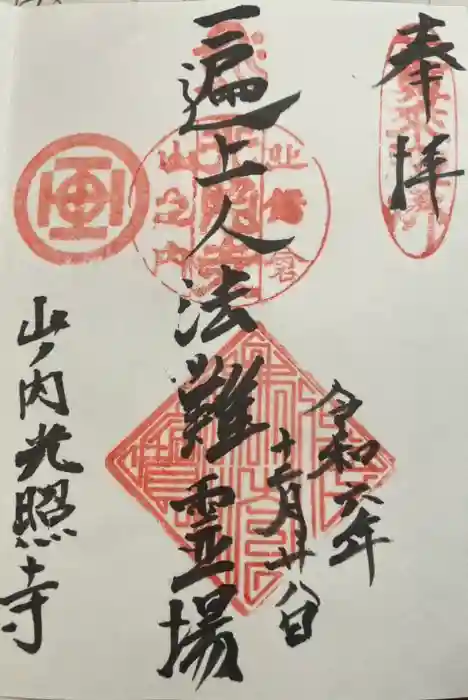 奉拝
令和六年
十二月廿八日
一遍上人法難霊場
北鎌倉
光照寺
山之内
山ノ内光照寺